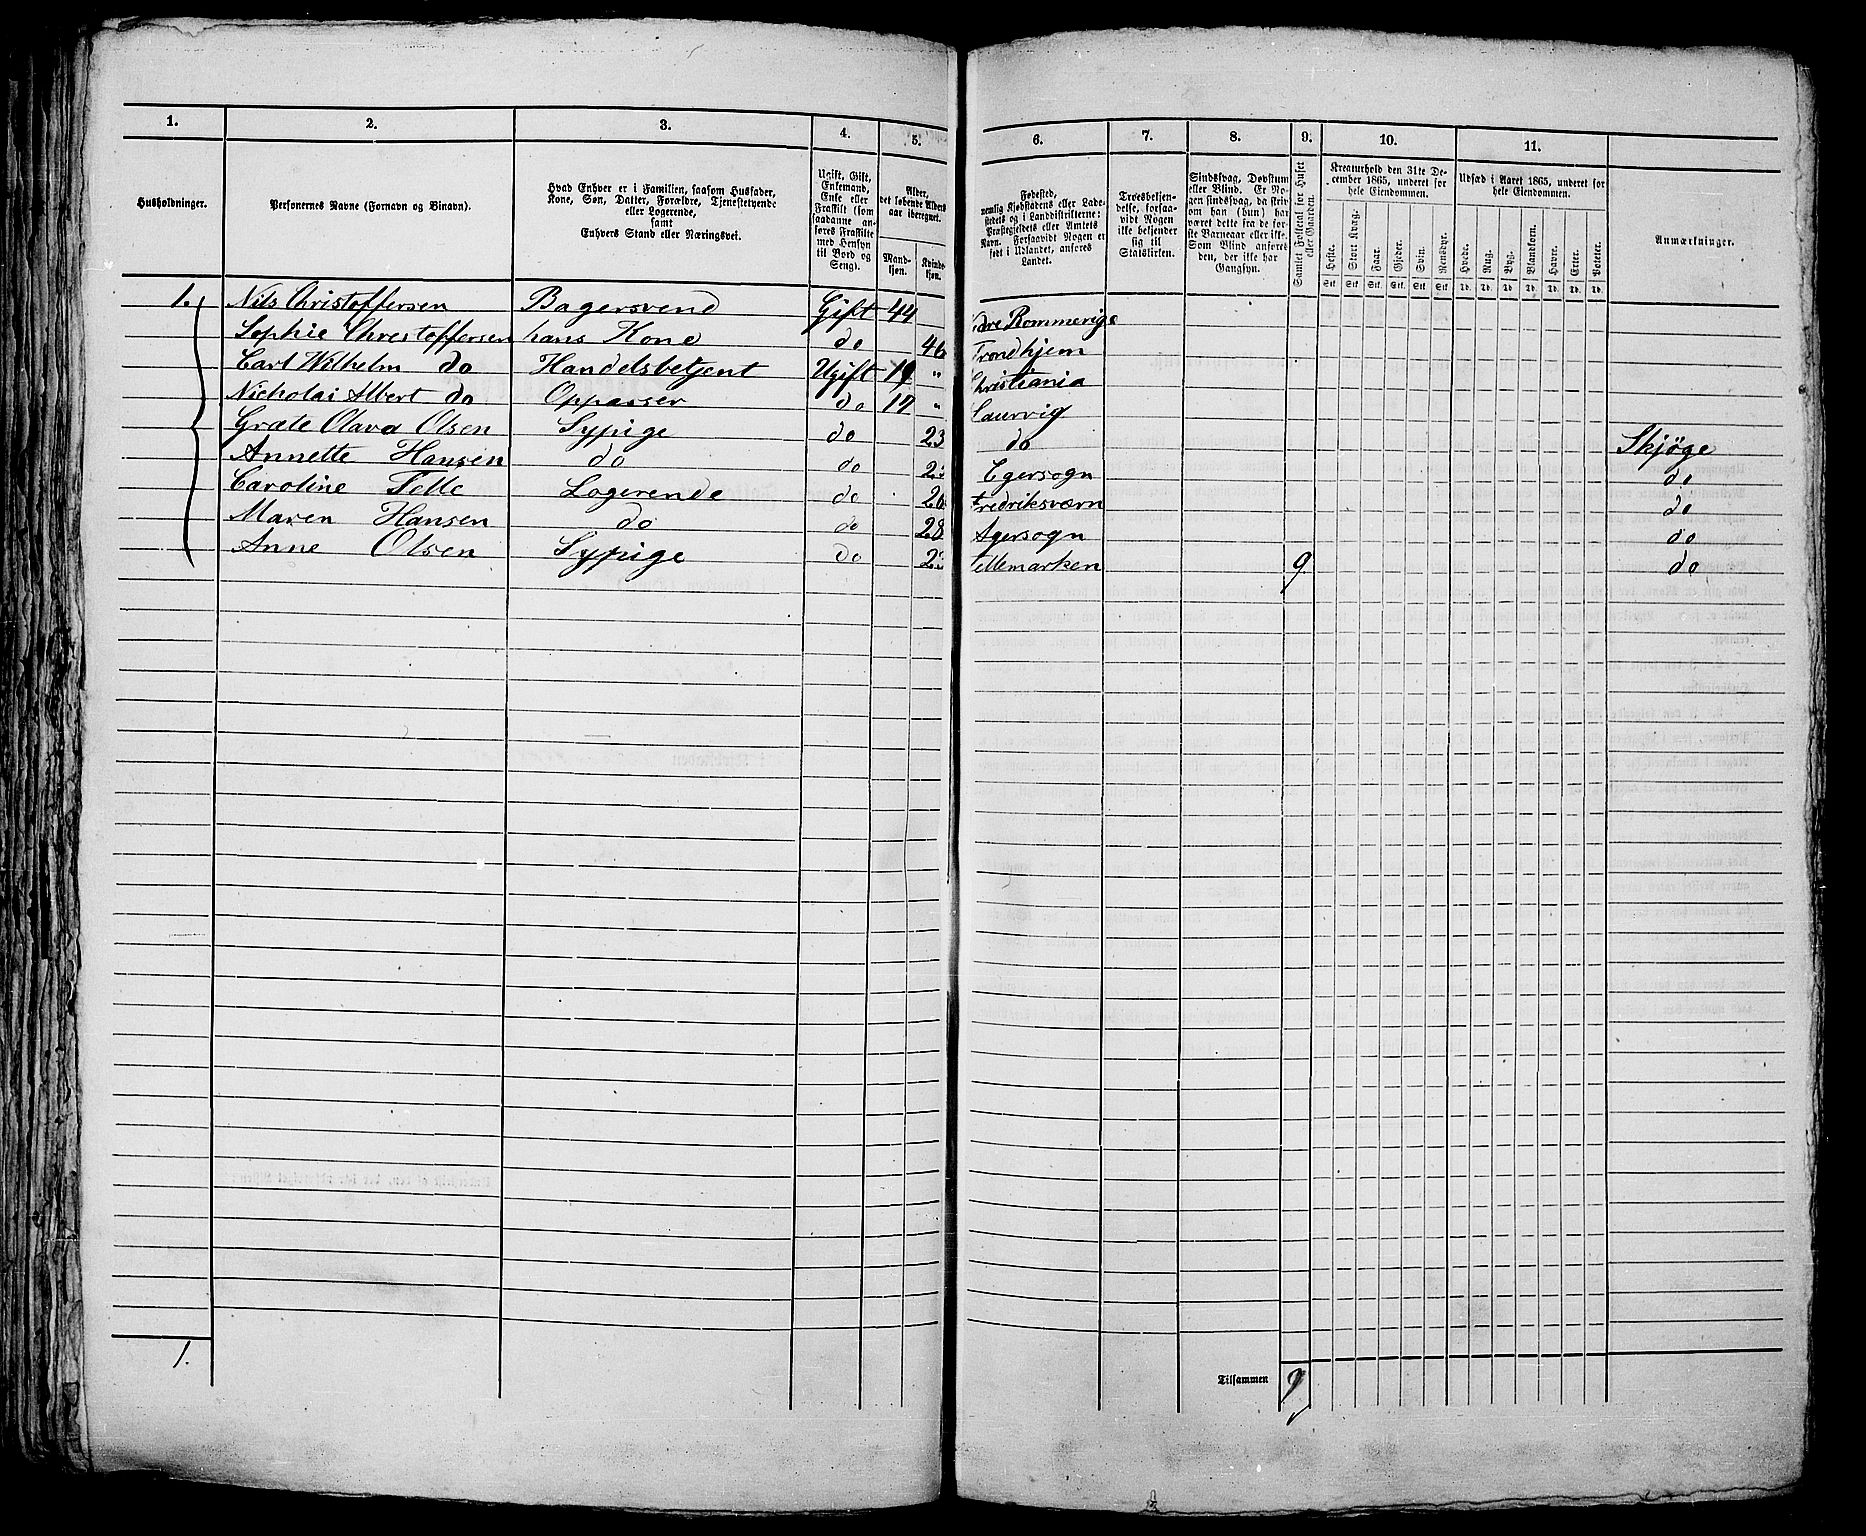 1. 2. 3. 4. 5.
Husholdninger.
Personernes Navne (Fornavn og Binavn).
Hvad Enhver er i Familien, saasom Husfader,
Kone, Søn, Datter, Forældre, Tjenestetyende
eller Logerende,
samt
Enhvers Stand eller Næringsvei.
Ugift, Gift,
Enkemand,
Enke eller
Fraskilt (som
saadanne an-
føres Fraskilte
med Hensyn
til Bord og
Seng).
Alder,
det løbende Alders-
aar iberegnet.
Mand-
kjøn.
Kvinde-
kjøn.
1. Nils Christoffersen Bagersvend Gift 44
Sophie Chrestoffersen hans Kone do 46
Carl Wilhelm do Handelsbetjent Ugift 19 "
Nicholai Albert do Oppasser do 17 "
Græte Olava Olsen Sypige do 23
Annette Hansen do do
Caroline Telle Logerende do 26
Maren Hansen do do 28
Anne Olsen Sypige do
1.
6. 7. 8. 9. 10. 11.
Fødested,
nemlig Kjøbstadens eller Lade-
stedets og i Landdistrikterne:
Præstegjeldets eller Amtets
Navn. Forsaavidt Nogen er
født i Udlandet, anføres
Landet.
Troesbekjen-
delse, forsaa-
vidt Nogen
ikke bekjender
sig til
Statskirken.
Sindssvag, Døvstum
eller Blind. Er No-
gen sindssvag, da skriv
om han (hun) har
været dette fra de før-
ste Barneaar eller ikke.
Som Blind anføres
den, der ikke har
Gangsyn.
Samlet Folketal for Huset
eller Gaarden.
Kreaturhold den 31te De-
cember 1865, underet for
hele Eiendommen.
Heste. Stort Kvæg. Faar. Gjeder. Svin. Rensdyr.
Stk. Stk. Stk. Stk. Stk. Stk.
Udsæd i Aaret 1865, underet for
hele Eiendommen.
Hvede. Rug. Byg. Blandkorn. Havre. Erter. Poteter.
Td. Td. Td. Td. Td. Td. Td.
Anmærkninger.
dre Rommerige
Trondhjem
Christiania
Laurvig
do Skjøge
Egersogn do
Fredriksværn do
Agersogn do
Tellemarken 9 do
Tilsammen 9